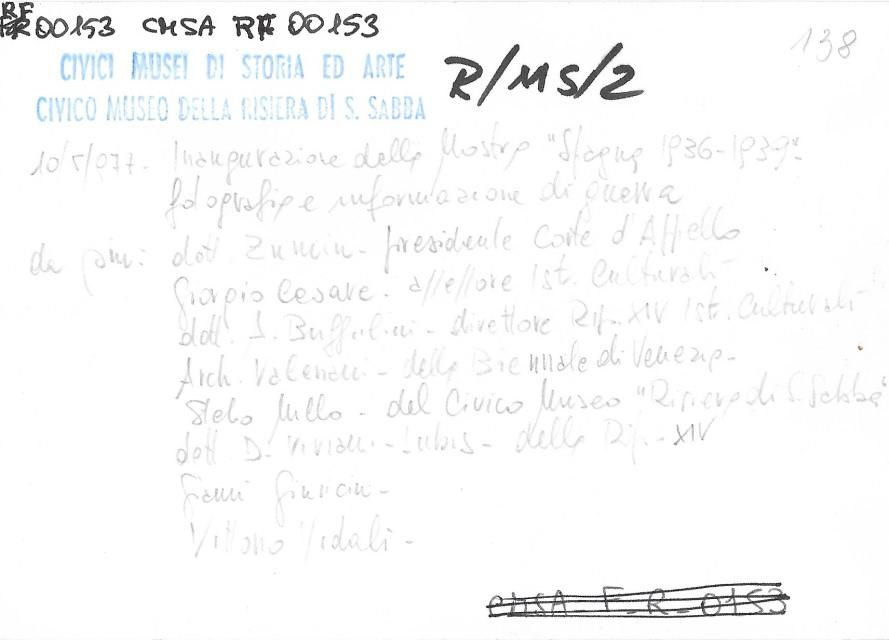 RF
00153 CMSA RF 00153
138
CIVICI MUSEI DI STORIA ED ARTE
CIVICO MUSEO DELLA RISIERA DI S. SABBA
R/MS/2
10/5/977- Inaugurazione della Mostra "Spagna 1936-1939"-
fotografia e informazione di guerra
da sin: dott. Zumin - presidente Corte d'Appello
Giorgio Cesare - assessore Ist. Culturali
dott. S. Buffolini - direttore Rip. XIV Ist. Culturali
Arch. - della Biennale di Venezia -
- del Civico Museo "Risiera di S. Sabba"
dott. D. - della Rip. - XIV
Gianni Giuricin -
Vittorio Vidali -
CMSA F_R_0153